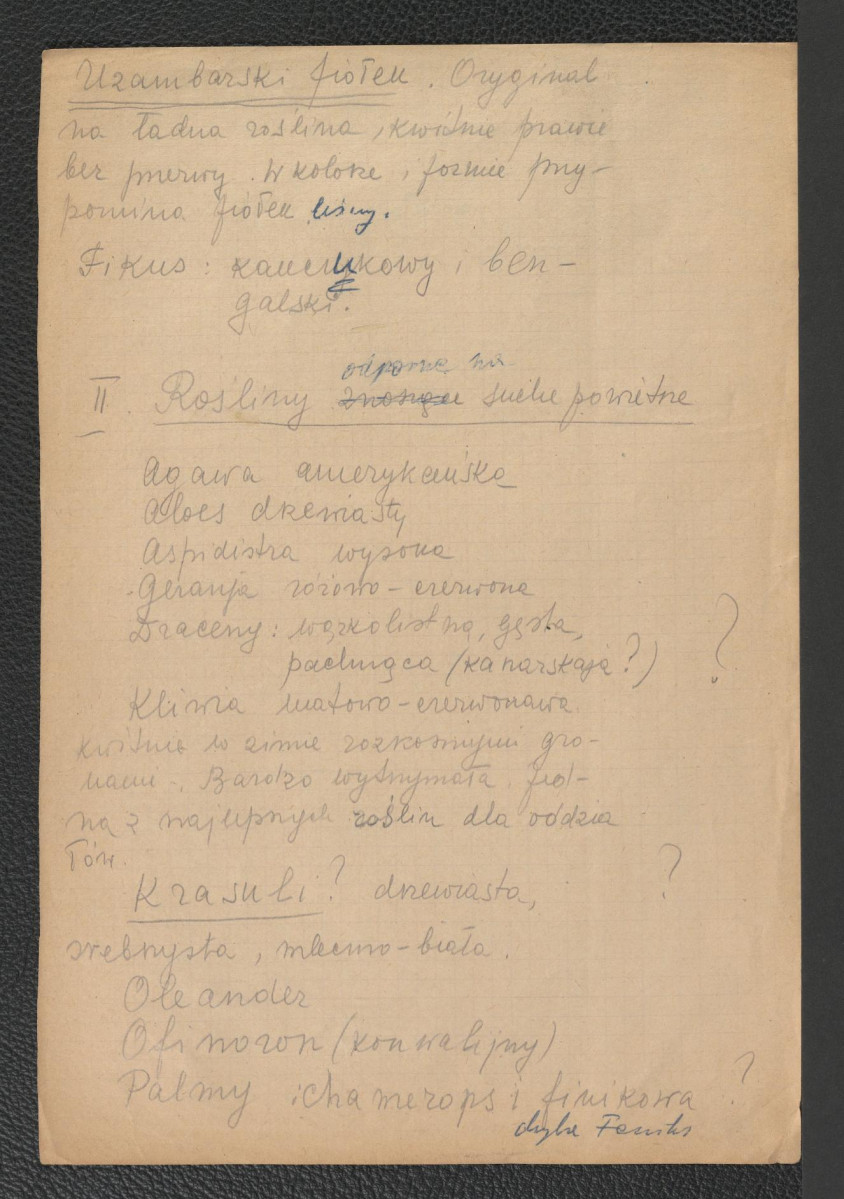 Uzambarski fiołek. Oryginal
na ładna roślina, kwitnie prawie
bez przerwy. W kolorze i formie przy-
pomina fiołek leśny.
Fikus: kauczukowy i ben-
galski.
odporne na
II. Rośliny znoszące suche powietrze
Agawa amerykańska
Aloes drzewiasty
Aspidistra wysoka
Geranja różowo-czerwona
Draceny: wązkolistna, gęsta,
pachnąca (kanarskaja?) ?
Kliwia matowo-czerwonawa
kwitnie w zimie rozkosznymi gro-
nami-. Bardzo wytrzymała. Jed-
na z najlepszych roślin dla oddzia
łów.
Krasuli? drzewiasta, ?
srebrzysta, mleczno-biała.
Oleander
Ofinozon (konwalijny)
Palmy: chamerops i finikowa ?
chyba Feniks